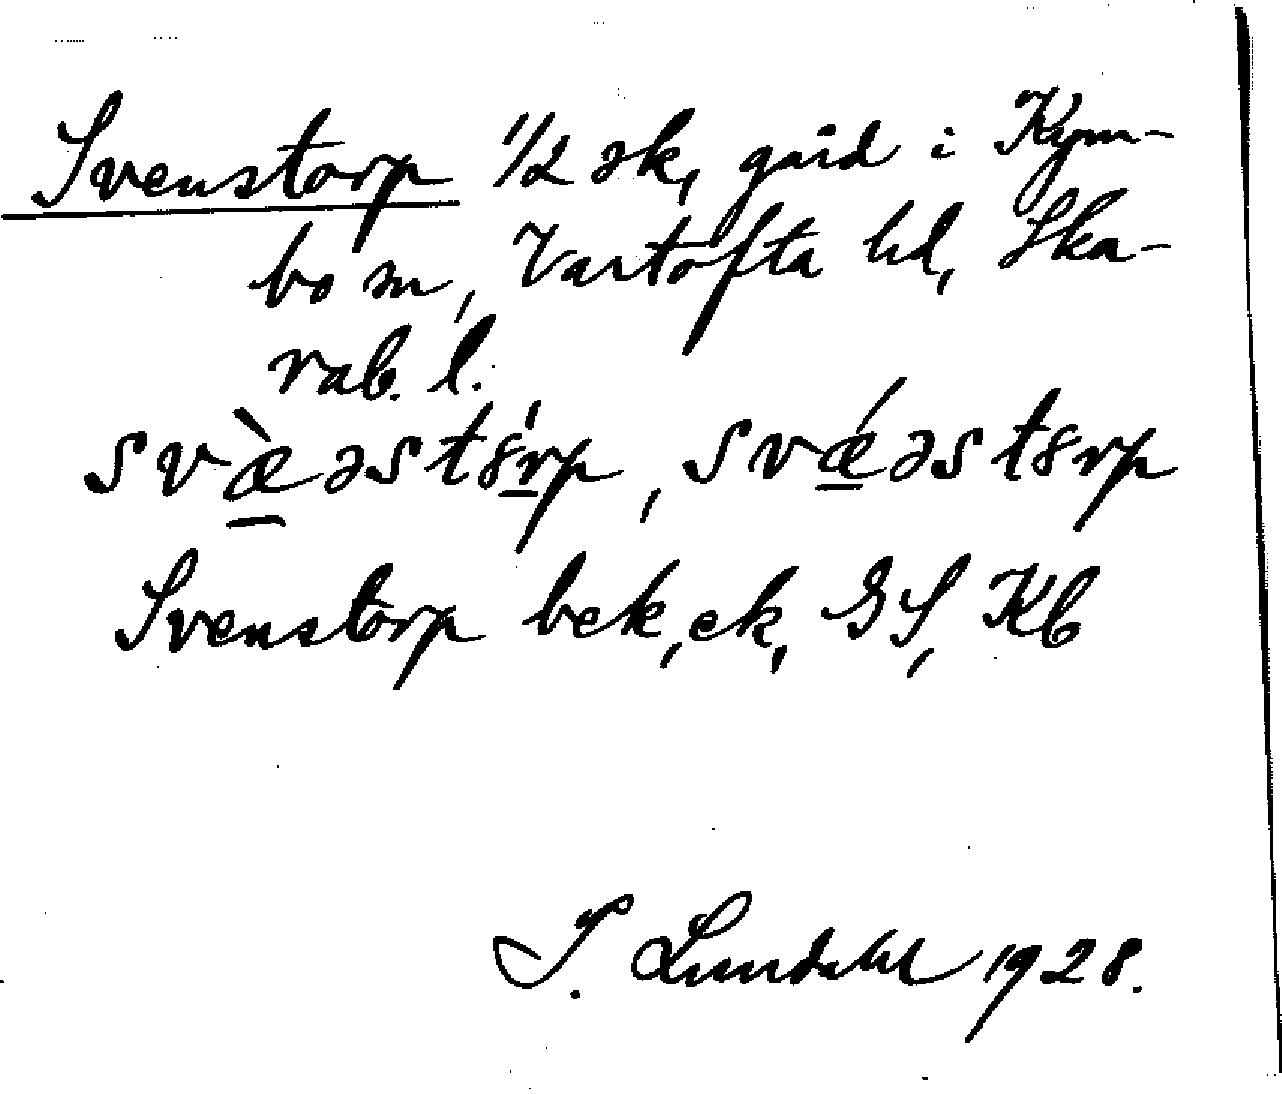 Svenstorp 1/2 sk, gård i Kym-
bo sn, Vartofta hd, Ska-
rab. l.
svæ̀əst8rp, svǽəst8rp
Svenstorp bek, ek, GS, Kb
I. Lundahl 1928.